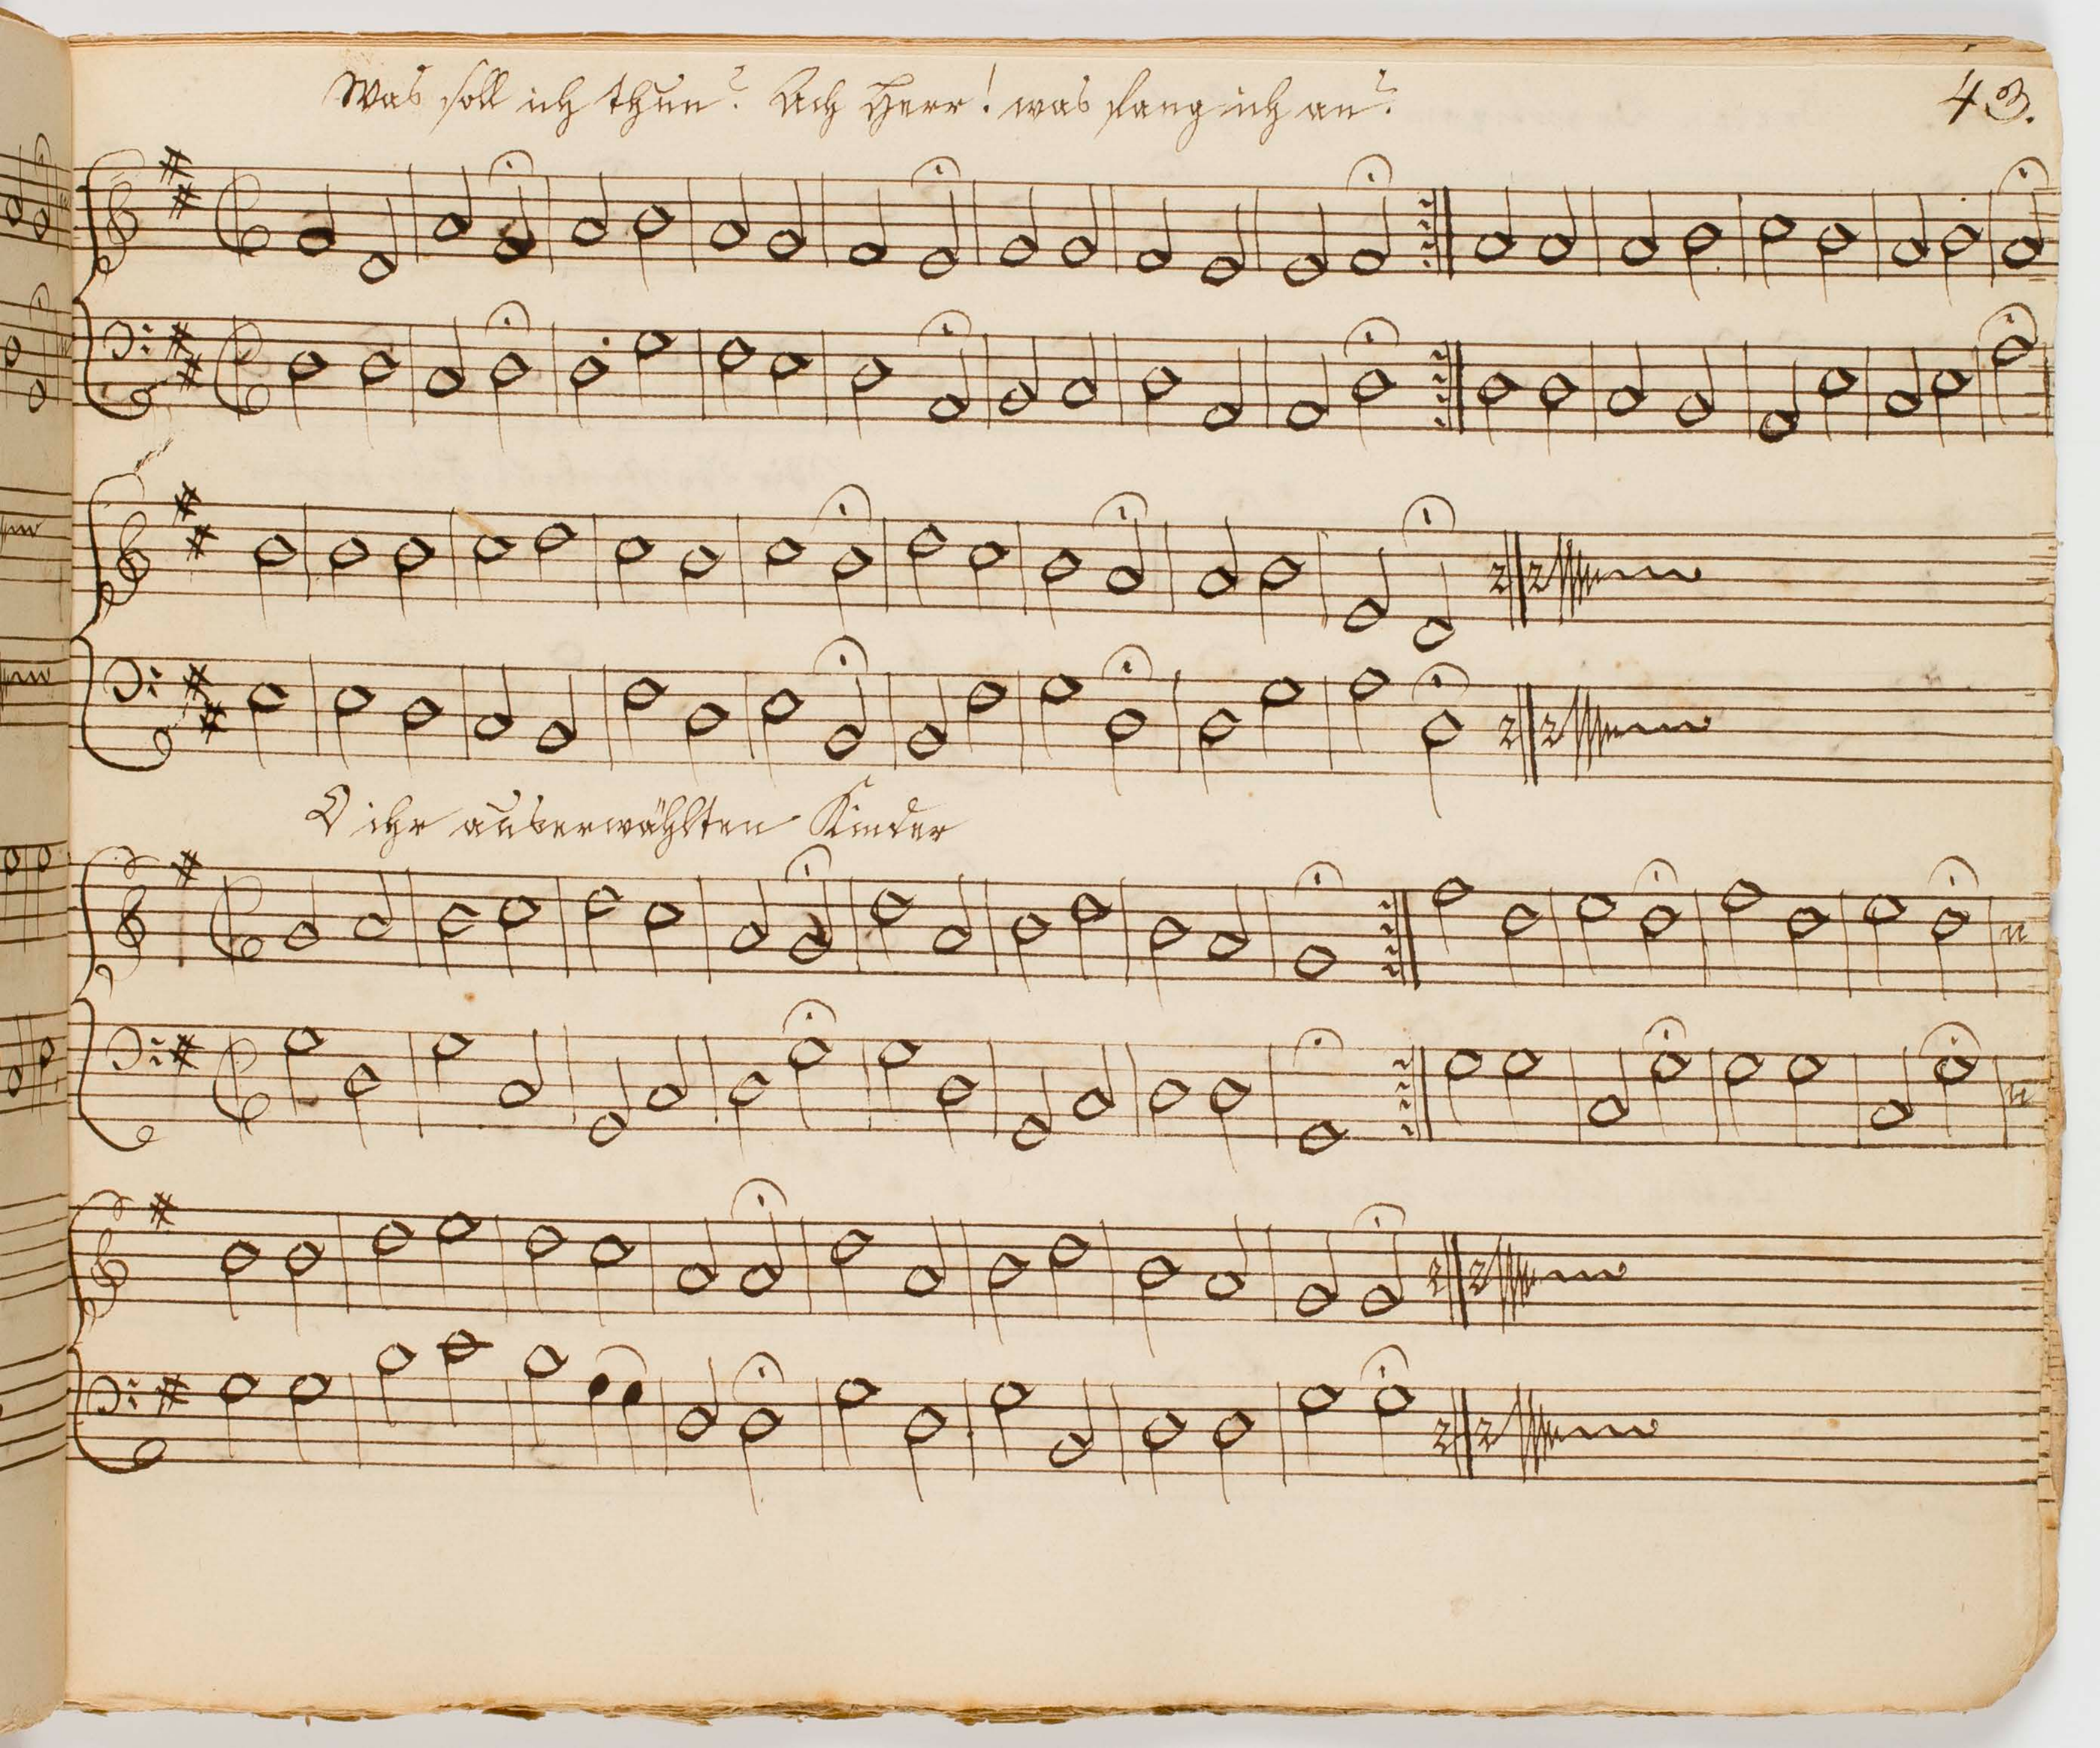 Was soll ich thun? Ach Herr! was fang ich an?
43.
O ihr auserwählten Kinder